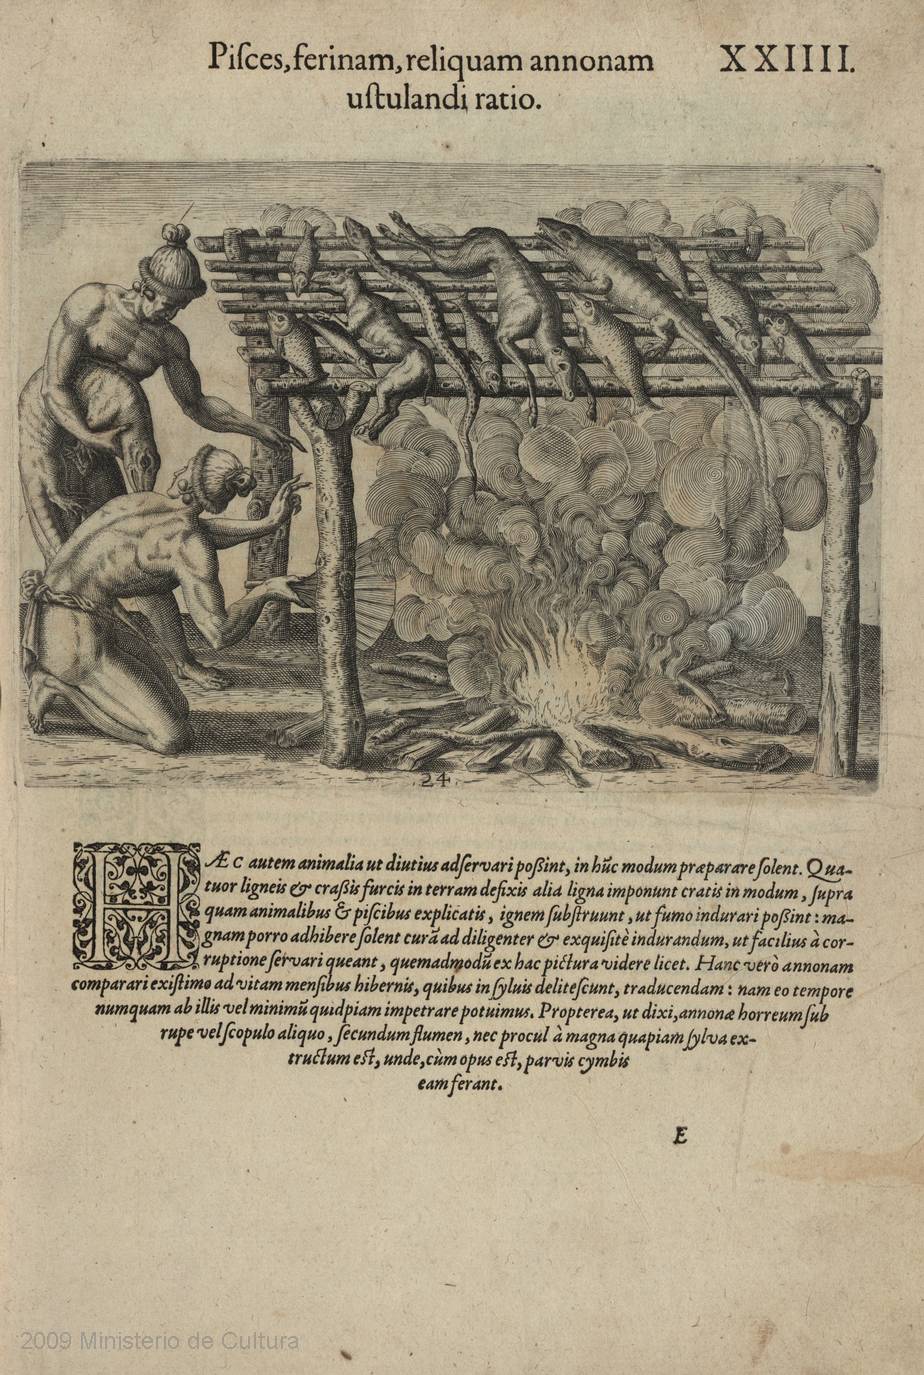 Piſces, ferinam, reliquam annonam
uſtulandi ratio.
XXIIII.
24.
HÆC autem animalia ut diutius adſervari poßint, in hũc modum præparare ſolent. Qua-
tuor ligneis & craßis furcis in terram defixis alia ligna imponunt cratis in modum, ſupra
quam animalibus & piſcibus explicatis, ignem ſubſtruunt, ut fumo indurari poßint: ma-
gnam porro adhibere ſolent curã ad diligenter & exquiſitè indurandum, ut facilius à cor-
ruptione ſervari queant, quemadmodũ ex hac pictura videre licet. Hanc verò annonam
comparari exiſtimo ad vitam menſibus hibernis, quibus in ſyluis deliteſcunt, traducendam: nam eo tempore
numquam ab illis vel minimũ quidpiam impetrare potuimus. Propterea, ut dixi, annonæ horreum ſub
rupe vel ſcopulo aliquo, ſecundum flumen, nec procul à magna quapiam ſylva ex-
tructum eſt, unde, cùm opus eſt, parvis cymbis
eam ferant.
E
2009 Ministerio de Cultura